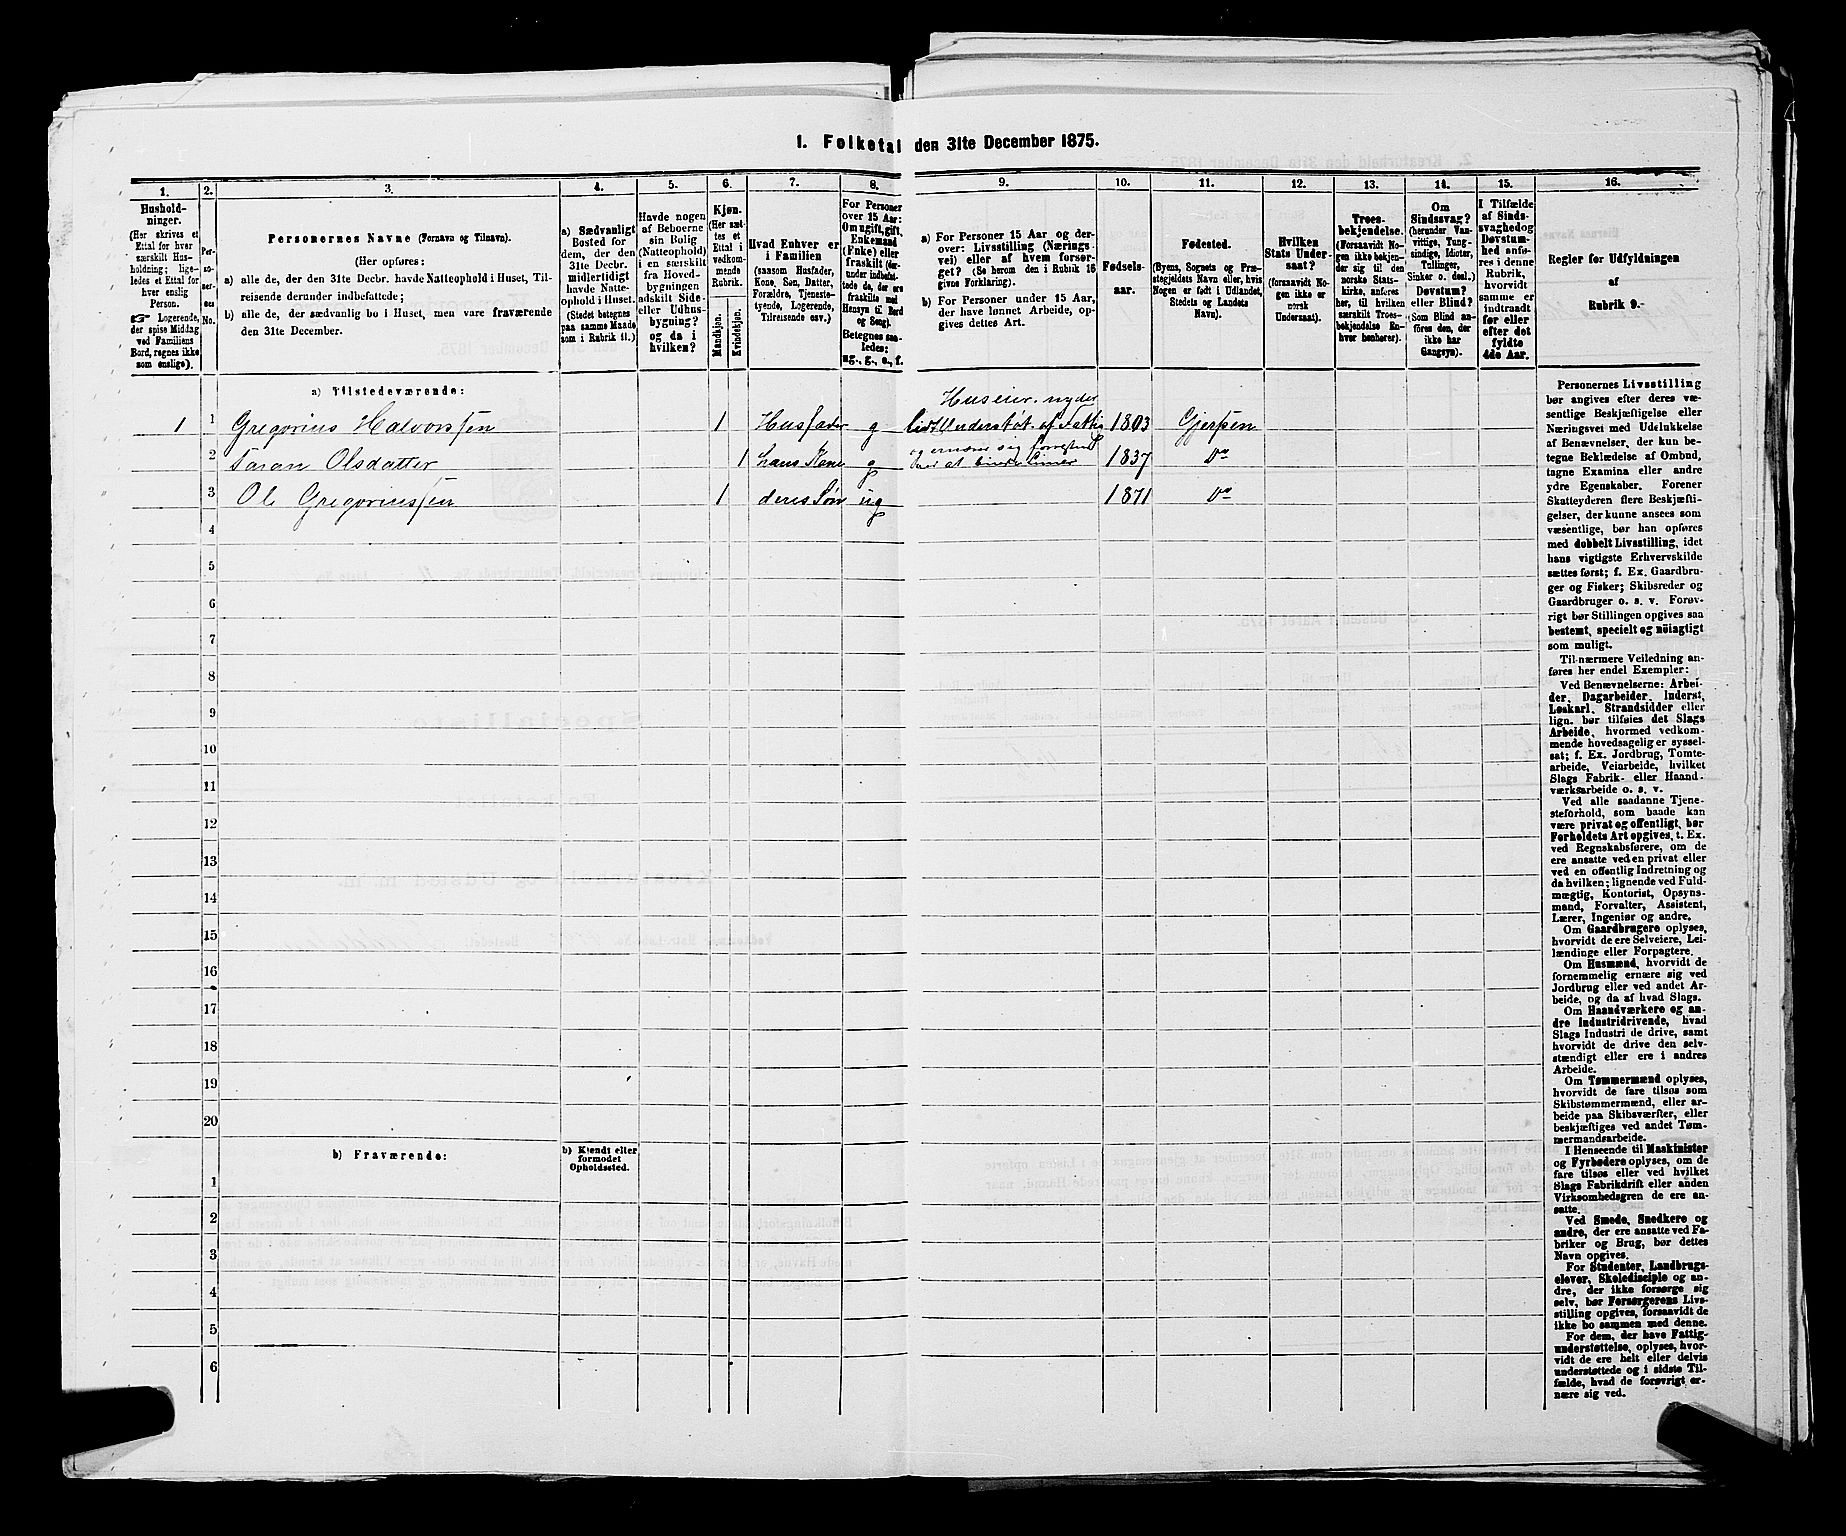 1. Folketal den 31te December 1875.
1. 2. 3. 4. 5. 6. 7. 8. 9. 10. 11. 12. 13. 14. 15. 16.
Hushold-
ninger.
(Her skrives et
Ettal for hver
særskilt Hus-
holdning; lige-
ledes et Ettal for
hver enslig
Person.
☞ Logerende,
der spise Middag
ved Familiens
Bord, regnes ikke
som enslige).
Per-
so-
ner-
nes
No.
Personernes Navne (Fornavn og Tilnavn).
(Her opføres:
a) alle de, der den 31te Decbr. havde Natteophold i Huset, Til-
reisende derunder indbefattede;
b) alle de, der sædvanlig bo i Huset, men vare fraværende
den 31te December.
a) Sædvanligt
Bosted for
dem, der den
31te Decbr.
midlertidigt
havde Natte-
ophold i Huset.
(Stedet betegnes
paa samme Maade
som i Rubrik 11.)
Havde nogen
af Beboerne
sin Bolig
(Natteophold)
i en særskilt
fra Hoved-
bygningen
adskilt Side-
eller Udhus-
bygning?
og da i
hvilken?
Kjøn.
(Her sæt-
tes et
Ettal i
vedkom-
mende
Rubrik.
Mandkjøn.
Kvindekjøn.
Hvad Enhver er
i Familien
(saasom Husfader,
Kone, Søn, Datter,
Forældre, Tjeneste-
tyende, Logerende,
Tilreisende osv.)
For Personer
over 15 Aar:
Om ugift, gift,
Enkemand
(Enke) eller
fraskilt (der-
under indbefat-
tede de, der ere
fraskilte med
Hensyn til Bord
og Seng).
Betegnes saa-
ledes:
ug., g., e., f.
a) For Personer 15 Aar og der-
over: Livsstilling (Nærings-
vei) eller af hvem forsør-
get? (Se herom den i Rubrik 16
givne Forklaring).
b) For Personer under 15 Aar,
der have lønnet Arbeide, op-
gives dettes Art.
Fødsels-
aar.
Fødested.
(Byens, Sognets og Præ-
stegjeldets Navn eller, hvis
Nogen er født i Udlandet,
Stedets og Landets
Navn).
Hvilken
Stats Under-
saat?
(forsaavidt No-
gen ikke er
norsk
Undersaat).
Troes-
bekjendelse.
(Forsaavidt No-
gen ikke bekjen-
der sig til den
norske Stats-
kirke, anføres
her, til hvilken
særskilt Troes-
bekjendelse En-
hver henhører).
Om
Sindssvag?
(herunder Van-
vittige, Tung-
sindige, Idioter,
Tullinger,
Sinker o. desl.)
Døvstum?
eller Blind?
(Som Blind an-
føres den, der
ikke har
Gangsyn).
I Tilfælde
af Sinds-
svaghed og
Døvstum-
hed anfø-
res i denne
Rubrik,
hvorvidt
samme er
indtraadt
før eller
efter det
fyldte
4de Aar.
Regler for Udfyldningen
af
Rubrik 9.
a) Tilstedeværende:
1 1 Gregorius Halvorssen 1 Husfader g Huseier. nyder
lidt Understøt. af Fattig 1803 Gjerpen
2 Taran Olsdatter 1 hans Kone g og ernærer sig forøvrigt
ved at binde Limer 1837 Do
3 Ole Gregoriussen 1 deres Søn ug 1871 Do
4
5
6
7
8
9
10
11
12
13
14
15
16
17
18
19
20
b) Fraværende: b) Kjendt eller
formodet
Opholdssted.
1
2
3
4
5
6
Personernes Livsstilling
bør angives efter deres væ-
sentlige Beskjæftigelse eller
Næringsvei med Udelukkelse
af Benævnelser, der kun be-
tegne Beklædelse af Ombud,
tagne Examina eller andre
ydre Egenskaber. Forener
Skatteyderen flere Beskjæfti-
gelser, der kunne ansees som
væsentlige, bør han opføres
med dobbelt Livsstilling, idet
hans vigtigste Erhvervskilde
sættes først; f. Ex. Gaardbru-
ger og Fisker; Skibsreder og
Gaardbruger o. s. v. Forøv-
rigt bør Stillingen opgives saa
bestemt, specielt og nöiagtigt
som muligt.
Til nærmere Veiledning an-
føres her endel Exempler:
Ved Benævnelserne: Arbei-
der, Dagarbeider, Inderst,
Løskarl, Strandsidder eller
lign. bør tilføies det Slags
Arbeide, hvormed vedkom-
mende hovedsagelig er syssel-
sat; f. Ex. Jordbrug, Tomte-
arbeide, Veiarbeide, hvilket
Slags Fabrik- eller Haand-
værksarbeide o. s. v.
Ved alle saadanne Tjene-
steforhold, som baade kan
være privat og offentligt, bør
Forholdets Art opgives, t. Ex.
ved Regnskabsførere, om de
ere ansatte ved en privat eller
ved en offentlig Indretning og
da hvilken; lignende ved Fuld-
mægtig, Kontorist, Opsyns-
mand, Forvalter, Assistent,
Lærer, Ingeniør og andre.
Om Gaardbrugere oplyses,
hvorvidt de ere Selveiere, Lei-
lændinge eller Forpagtere.
Om Husmænd, hvorvidt de
fornemmelig ernære sig ved
Jordbrug eller ved andet Ar-
beide, og da af hvad Slags.
Om Haandværkere og an-
dre Industridrivende, hvad
Slags Industri de drive, samt
hvorvidt de drive den selv-
stændigt eller ere i andres
Arbeide.
Om Tømmermænd oplyses,
hvorvidt de fare tilsøs som
Skibstømmermænd, eller ar-
beide paa Skibsværfter, eller
beskjæftiges ved andet Tøm-
mermandsarbeide.
I Henseende til Maskinister
og Fyrbødere oplyses, om de
fare tilsøs eller ved hvilket
Slags Fabrikdrift eller anden
Virksomhedsgren de ere an-
satte.
Ved Smede, Snedkere og
andre, der ere ansatte ved Fa-
briker og Brug, bør dettes
Navn opgives.
For Studenter, Landbrugs-
elever, Skoledisciple og an-
dre, der ikke forsørge sig
selv, bør Forsørgerens Livs-
stilling opgives, forsaavidt de
ikke bo sammen med denne.
For dem, der have Fattig-
understøttelse, oplyses, hvor-
vidt de ere helt eller delvis
understøttede og i sidste Til-
fælde, hvad de forøvrigt er-
nære sig ved.